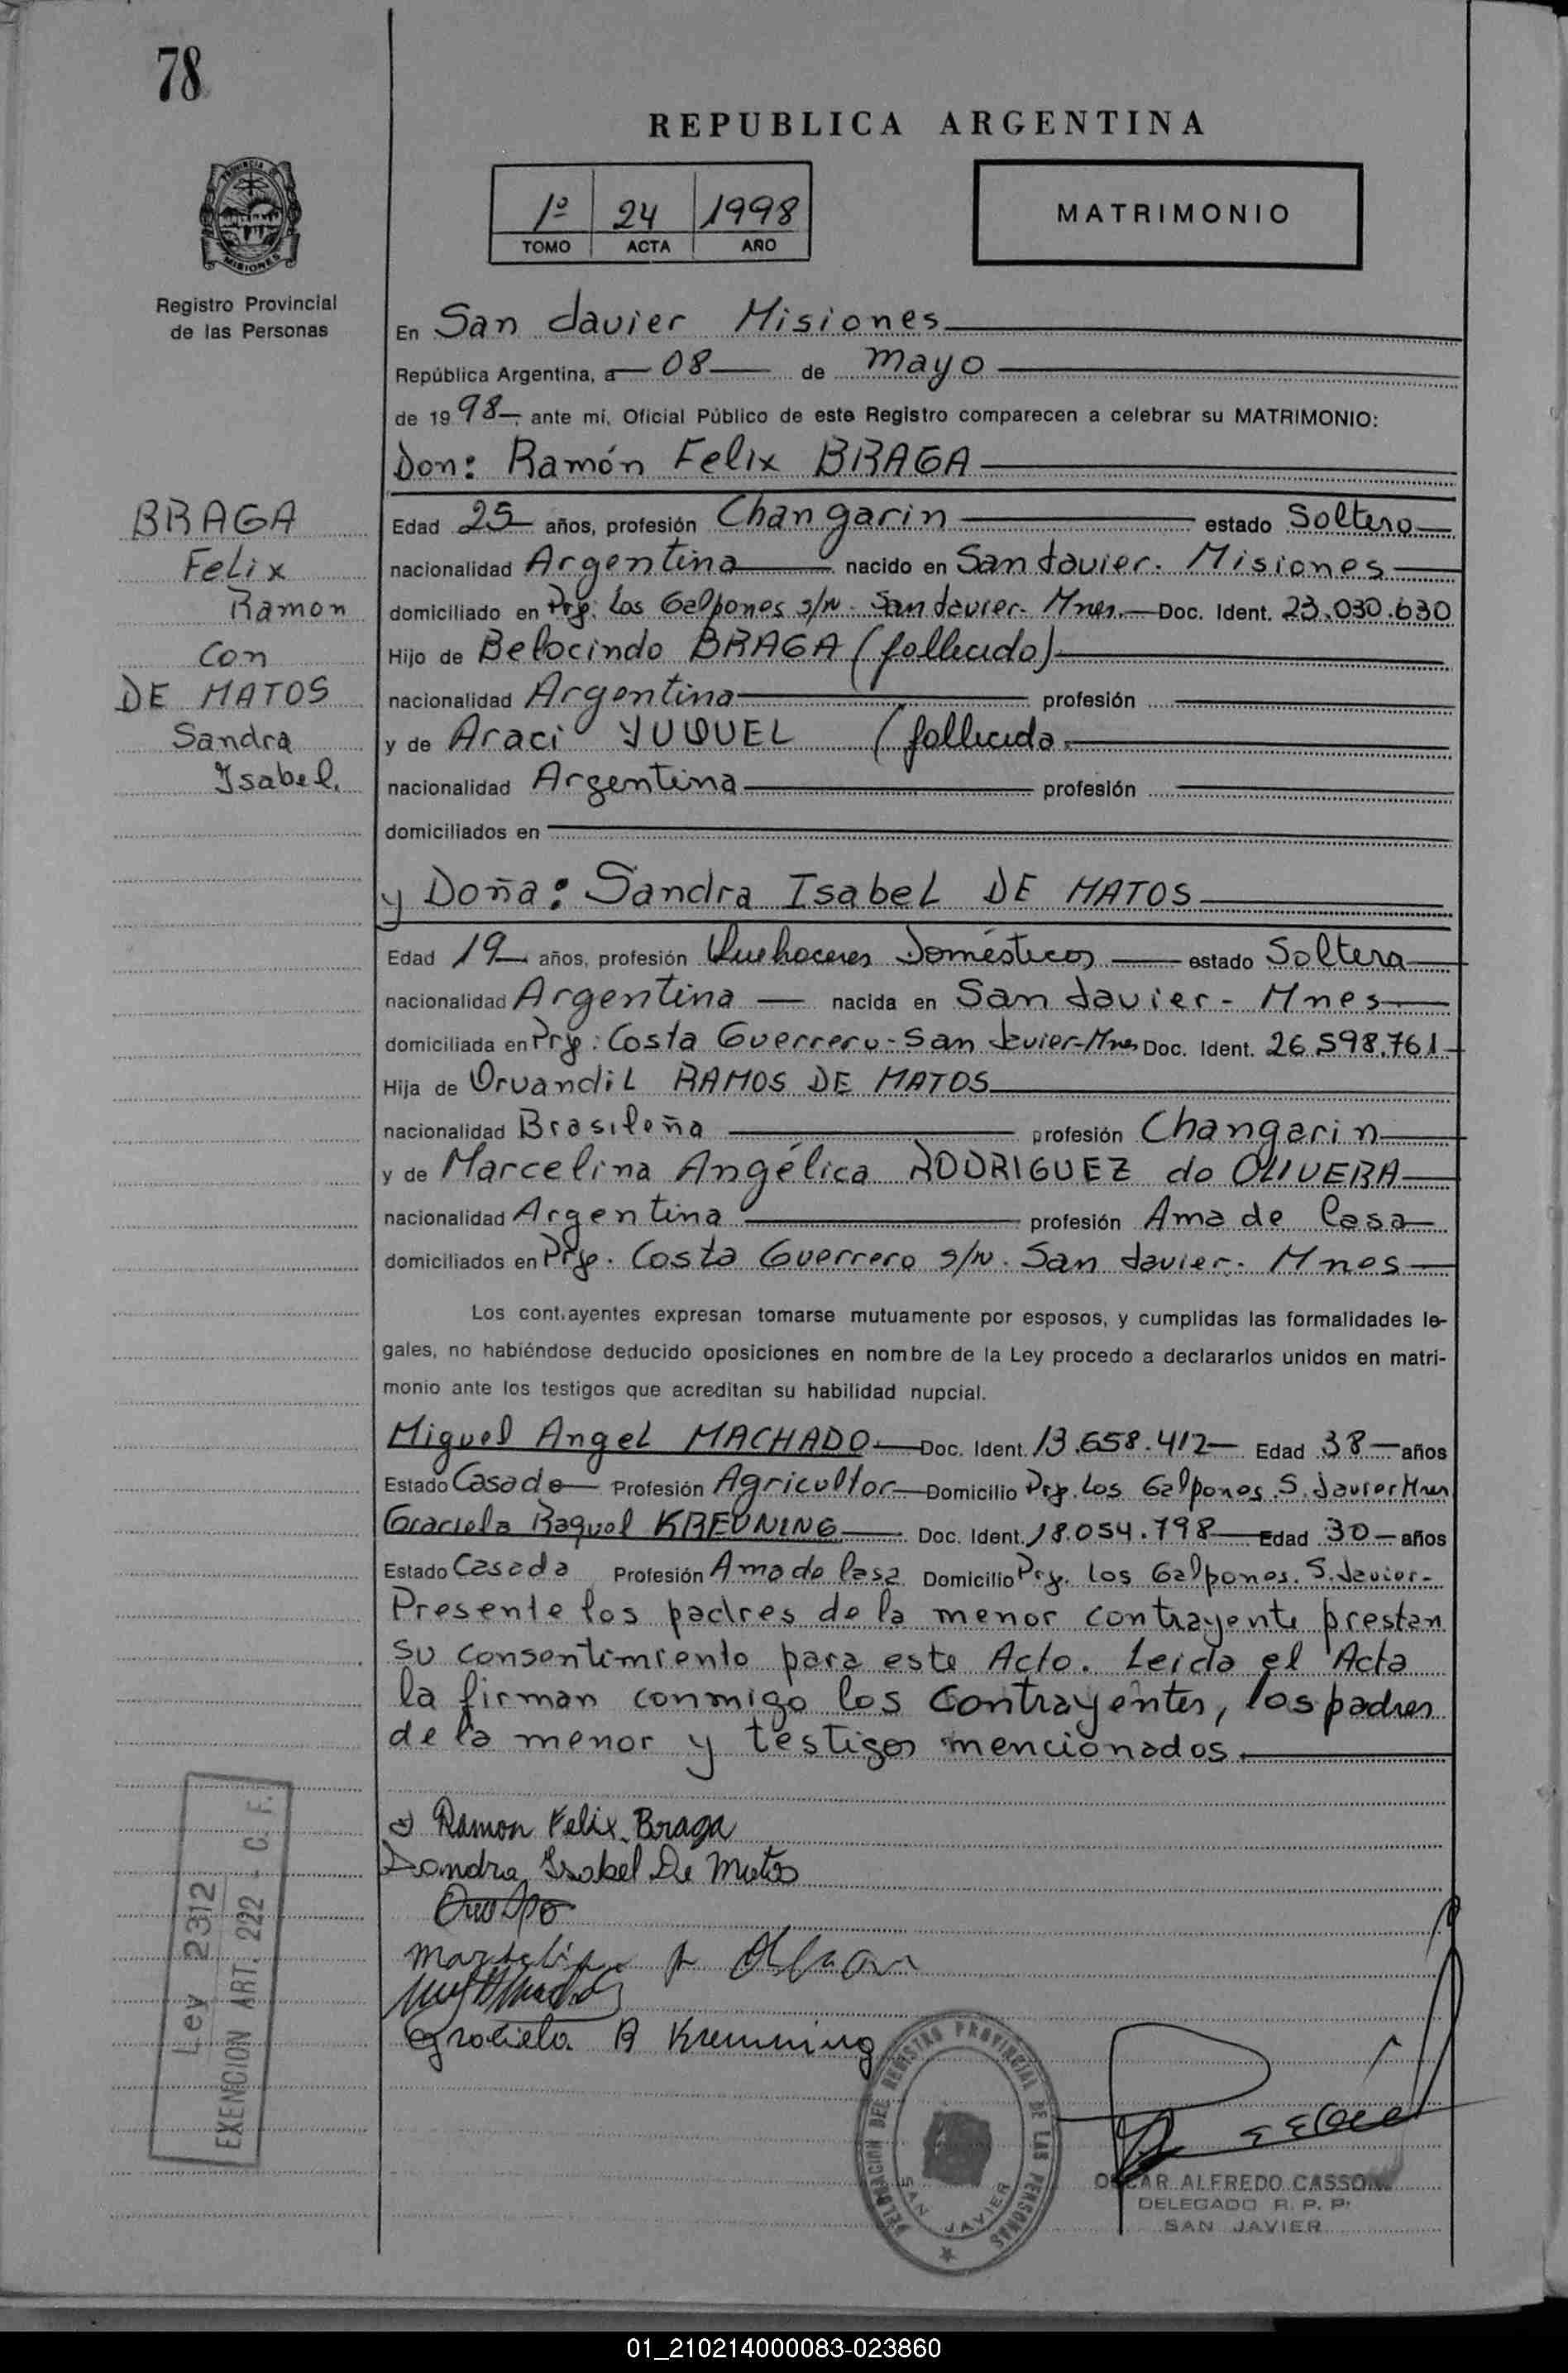 78
REPUBLICA ARGENTINA
PROVINCIA DE MISIONES
1º 24 1998
TOMO ACTA AÑO
MATRIMONIO
Registro Provincial
de las Personas
En San Javier Misiones
República Argentina, a 08 de Mayo
de 1998 ante mí, Oficial Público de este Registro comparecen a celebrar su MATRIMONIO:
Don: Ramón Felix BRAGA
BRAGA
Felix
Ramon
Con
DE MATOS
Sandra
Isabel.
Edad 25 años, profesión Changarin estado Soltero
nacionalidad Argentina nacido en San Javier. Misiones
domiciliado en Prje: Los Galpones s/n. San Javier. Mnes. Doc. Ident. 23.030.630
Hijo de Belocindo BRAGA (fallecido)
nacionalidad Argentina profesión
y de Araci YUQUEL (fallecida.
nacionalidad Argentina profesión
domiciliados en
y Doña: Sandra Isabel DE MATOS
Edad 19 años, profesión Quehaceres Domésticos estado Soltera
nacionalidad Argentina nacida en San Javier - Mnes
domiciliada en Prje: Costa Guerrero - San Javier - Mnes Doc. Ident. 26.598.761
Hija de Orvandil RAMOS DE MATOS
nacionalidad Brasileña profesión Changarin
y de Marcelina Angélica RODRIGUEZ de OLIVERA
nacionalidad Argentina profesión Ama de Casa
domiciliados en Prje. Costa Guerrero s/n. San Javier. Mnes
Los contrayentes expresan tomarse mutuamente por esposos, y cumplidas las formalidades le-
gales, no habiéndose deducido oposiciones en nombre de la Ley procedo a declararlos unidos en matri-
monio ante los testigos que acreditan su habilidad nupcial.
Miguel Angel MACHADO Doc. Ident. 13.658.412 Edad 38 años
Estado Casado Profesión Agricultor Domicilio Prje. Los Galpones. S. Javier Mnes
Graciela Raquel KREUNING Doc. Ident. 18.054.798 Edad 30 años
Estado Casada Profesión Ama de Casa Domicilio Prje. Los Galpones. S. Javier.
Presente los padres de la menor contrayente prestan
su consentimiento para este Acto. Leida el Acta
la firman conmigo los contrayentes, los padres
de la menor y testigos mencionados.
Ramon Felix Braga
Sandra Isabel De Matos
Graciela R Kreunning
Ley 2312
EXENCION ART. 222 - C. F.
DELEGACION DEL REGISTRO PROVINCIAL DE LAS PERSONAS
SAN JAVIER
OSCAR ALFREDO CASSONI
DELEGADO R. P. P.
SAN JAVIER
01_210214000083-023860